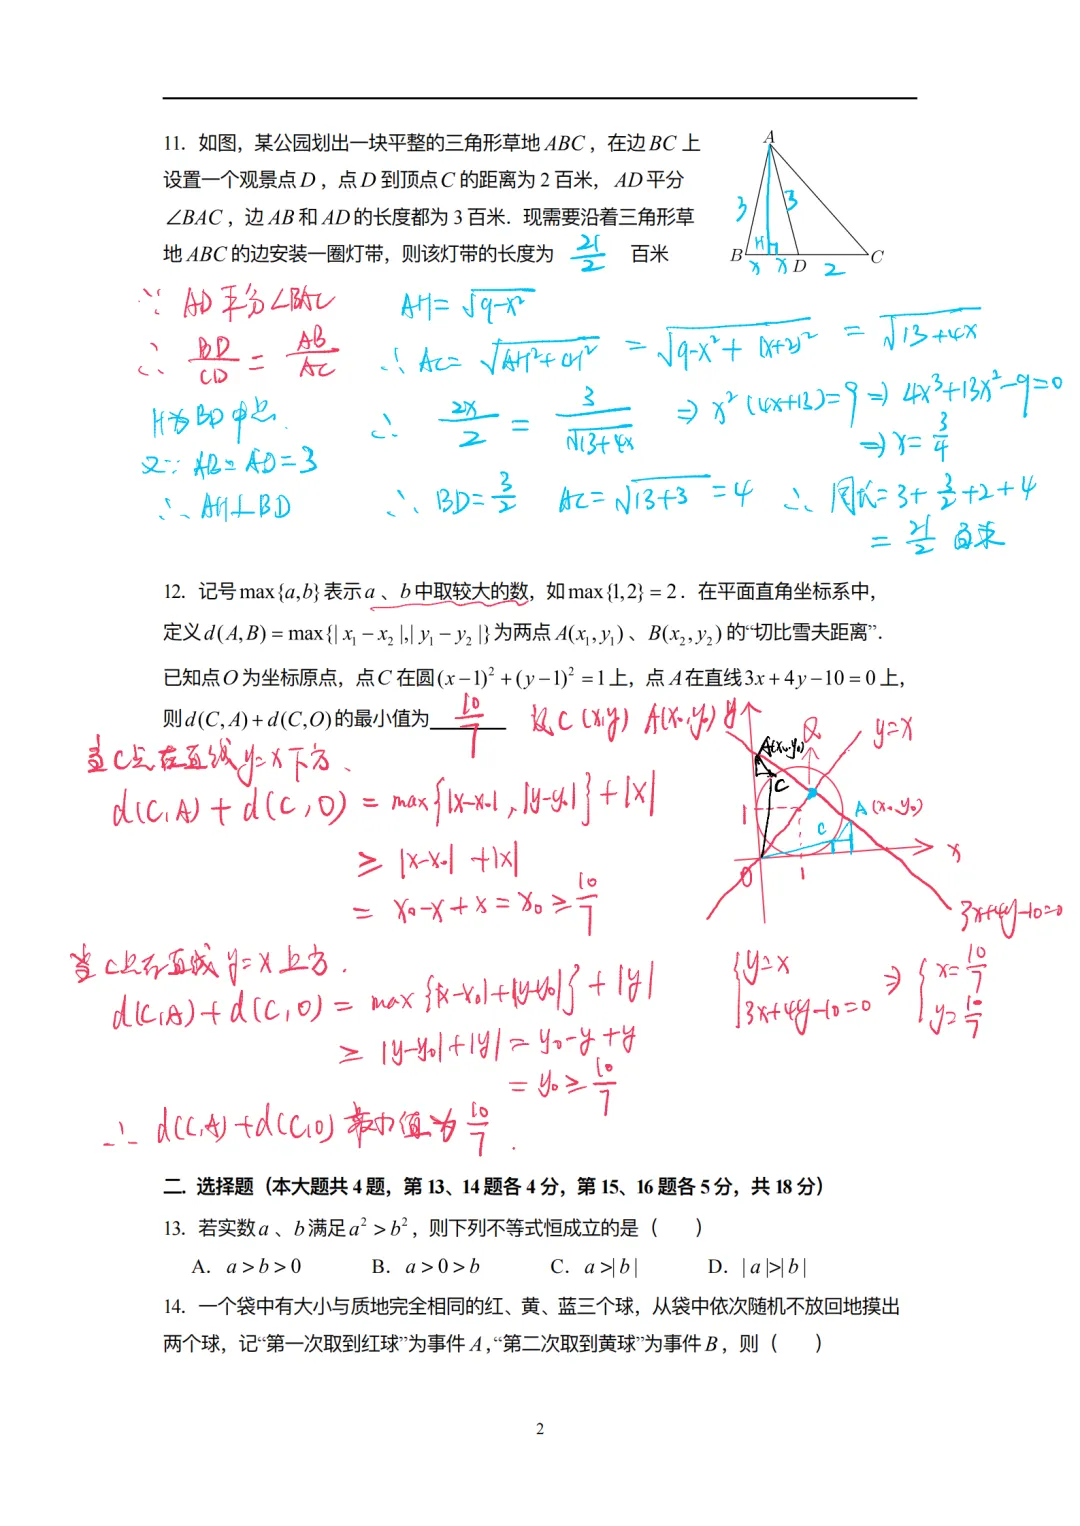 11. 如图，某公园划出一块平整的三角形草地 ABC，在边 BC 上
设置一个观景点 D，点 D 到顶点 C 的距离为 2 百米，AD 平分
∠BAC，边 AB 和 AD 的长度都为 3 百米．现需要沿着三角形草
地 ABC 的边安装一圈灯带，则该灯带的长度为 21/2 百米
A
3 3
B H D C
x x 2
∵ AD平分∠BAC AH=√(9-x²)
∴ BD/CD = AB/AC ∴ AC= √(AH²+CH²) = √(9-x²+(x+2)²) = √(13+4x)
H为BD中点. ∴ 2x/2 = 3/√(13+4x) ⇒ x²(4x+13)=9 ⇒ 4x³+13x²-9=0
⇒ x= 3/4
又∵ AB=AD=3
∴ AH⊥BD ∴ BD=3/2 AC=√(13+3) =4 ∴ 周长=3+3/2+2+4
= 21/2 百米
12. 记号 max{a,b} 表示 a 、b 中取较大的数，如 max{1,2} = 2．在平面直角坐标系中，
定义 d(A,B) = max{| x₁ − x₂ |,| y₁ − y₂ |} 为两点 A(x₁, y₁) 、B(x₂, y₂) 的“切比雪夫距离”．
已知点 O 为坐标原点，点 C 在圆 (x−1)² + (y−1)² =1 上，点 A 在直线 3x + 4y −10 = 0 上，
则 d(C, A) + d(C,O) 的最小值为 10/7 设C(x,y) A(x₀,y₀)
y Q y=x
A(x₀,y₀)
C
1 A(x₀,y₀)
C
x
0 1
3x+4y-10=0
当C点在直线y=x下方、
d(C,A) + d(C,O) = max{|x-x₀|,|y-y₀|}+|x|
≥ |x-x₀| +|x|
= x₀-x+x=x₀≥10/7
当C点在直线y=x上方.
d(C,A)+d(C,O) = max{|x-x₀|+|y-y₀|}+|y|
≥ |y-y₀|+|y|= y₀-y+y
= y₀≥10/7
{y=x 3x+4y-10=0 ⇒ {x=10/7 y=10/7
∴ d(C,A)+d(C,O) 最小值为10/7.
二. 选择题（本大题共 4 题，第 13、14 题各 4 分，第 15、16 题各 5 分，共 18 分）
13. 若实数 a 、b 满足 a² > b²，则下列不等式恒成立的是（ ）
A. a > b > 0 B. a > 0 > b C. a >| b | D. | a |>| b |
14. 一个袋中有大小与质地完全相同的红、黄、蓝三个球，从袋中依次随机不放回地摸出
两个球，记“第一次取到红球”为事件 A，“第二次取到黄球”为事件 B，则（ ）
2